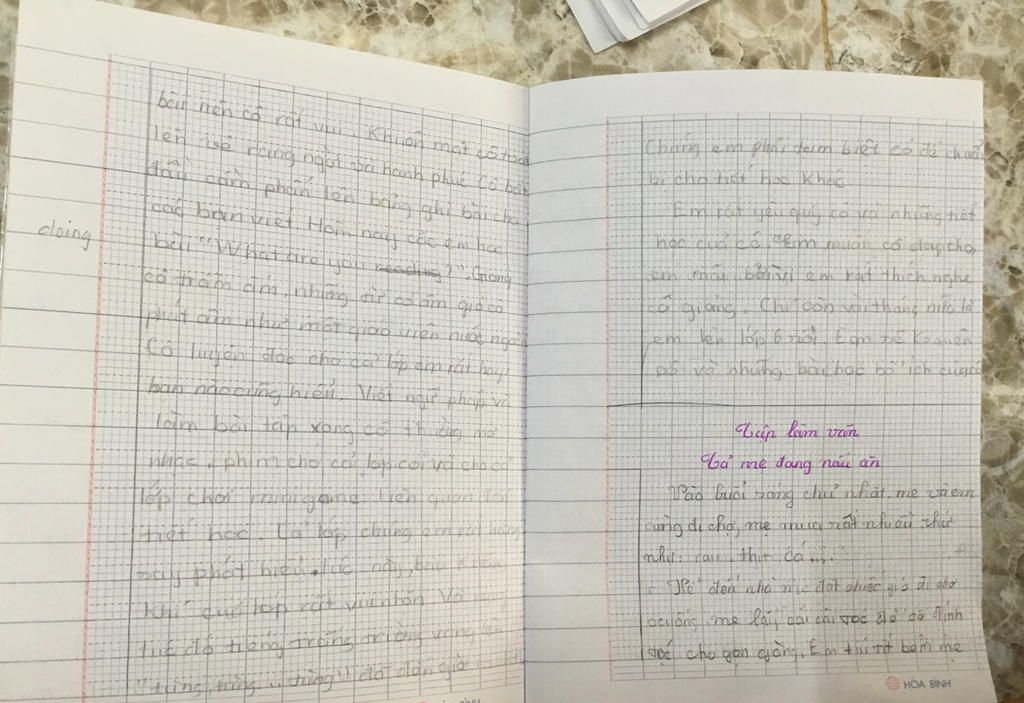 bài nên cô rất vui. Khuôn mặt cô toát
lên vẻ rạng ngời và hạnh phúc. Cô bắt
đầu cầm phấn lên bảng ghi bài cho
các bạn viết. Hôm nay các em học
doing
bài "What are you reading?". Giọng
cô trầm ấm, những từ
phát âm như một giáo viên nước ngoài
Cô luyện đọc cho cả lớp em rất hay,
bạn nào cũng hiểu. Viết ngữ pháp và
làm bài tập xong cô thường mở
nhạc, phim cho cả lớp coi và cho cả
lớp chơi minigame liên quan đến
tiết học. Cả lớp chúng em rất hăng
say phát biểu. Lúc này, bầu không
khí của lớp rất vui nhộn. Và
lúc đó tiếng trống trường vang
"tùng, tùng, tùng" đã đến giờ
Chúng em phải tạm biệt cô để chuẩn
bị cho tiết học khác
Em rất yêu quý cô và những tiết
học của cô. Em muốn cô dạy cho
em mãi, bởi vì em rất thích nghe
cô giảng. Chỉ còn vài tháng nữc là
em lên lớp 6 rồi. Em sẽ ko quên
cô và những bài học bổ ích của cô
Tập làm văn
Tả mẹ đang nấu ăn
Vào buổi sáng chủ nhật, mẹ và em
cùng đi chợ, mẹ mua rất nhiều thứ
như: rau, thịt, cá....
Về đến nhà mẹ đặt chiếc giỏ đi chợ
xuống, mẹ lấy cái cài tóc để cố định
tóc cho gọn gàng. Em thì tít bám mẹ
HÒA BÌNH